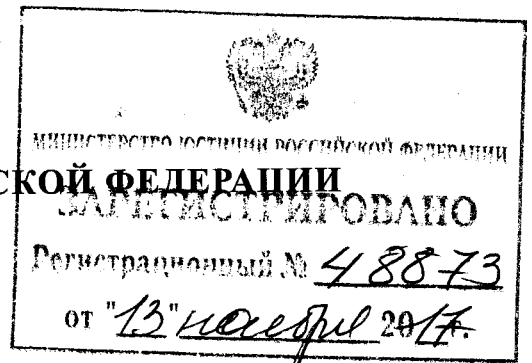 МИНИСТЕРСТВО ЮСТИЦИИ РОССИЙСКОЙ ФЕДЕРАЦИИ
СКОЙ ФЕДЕРАЦИИ
ЗАРЕГИСТРИРОВАНО
Регистрационный № 48873
от "13" ноября 2017г.